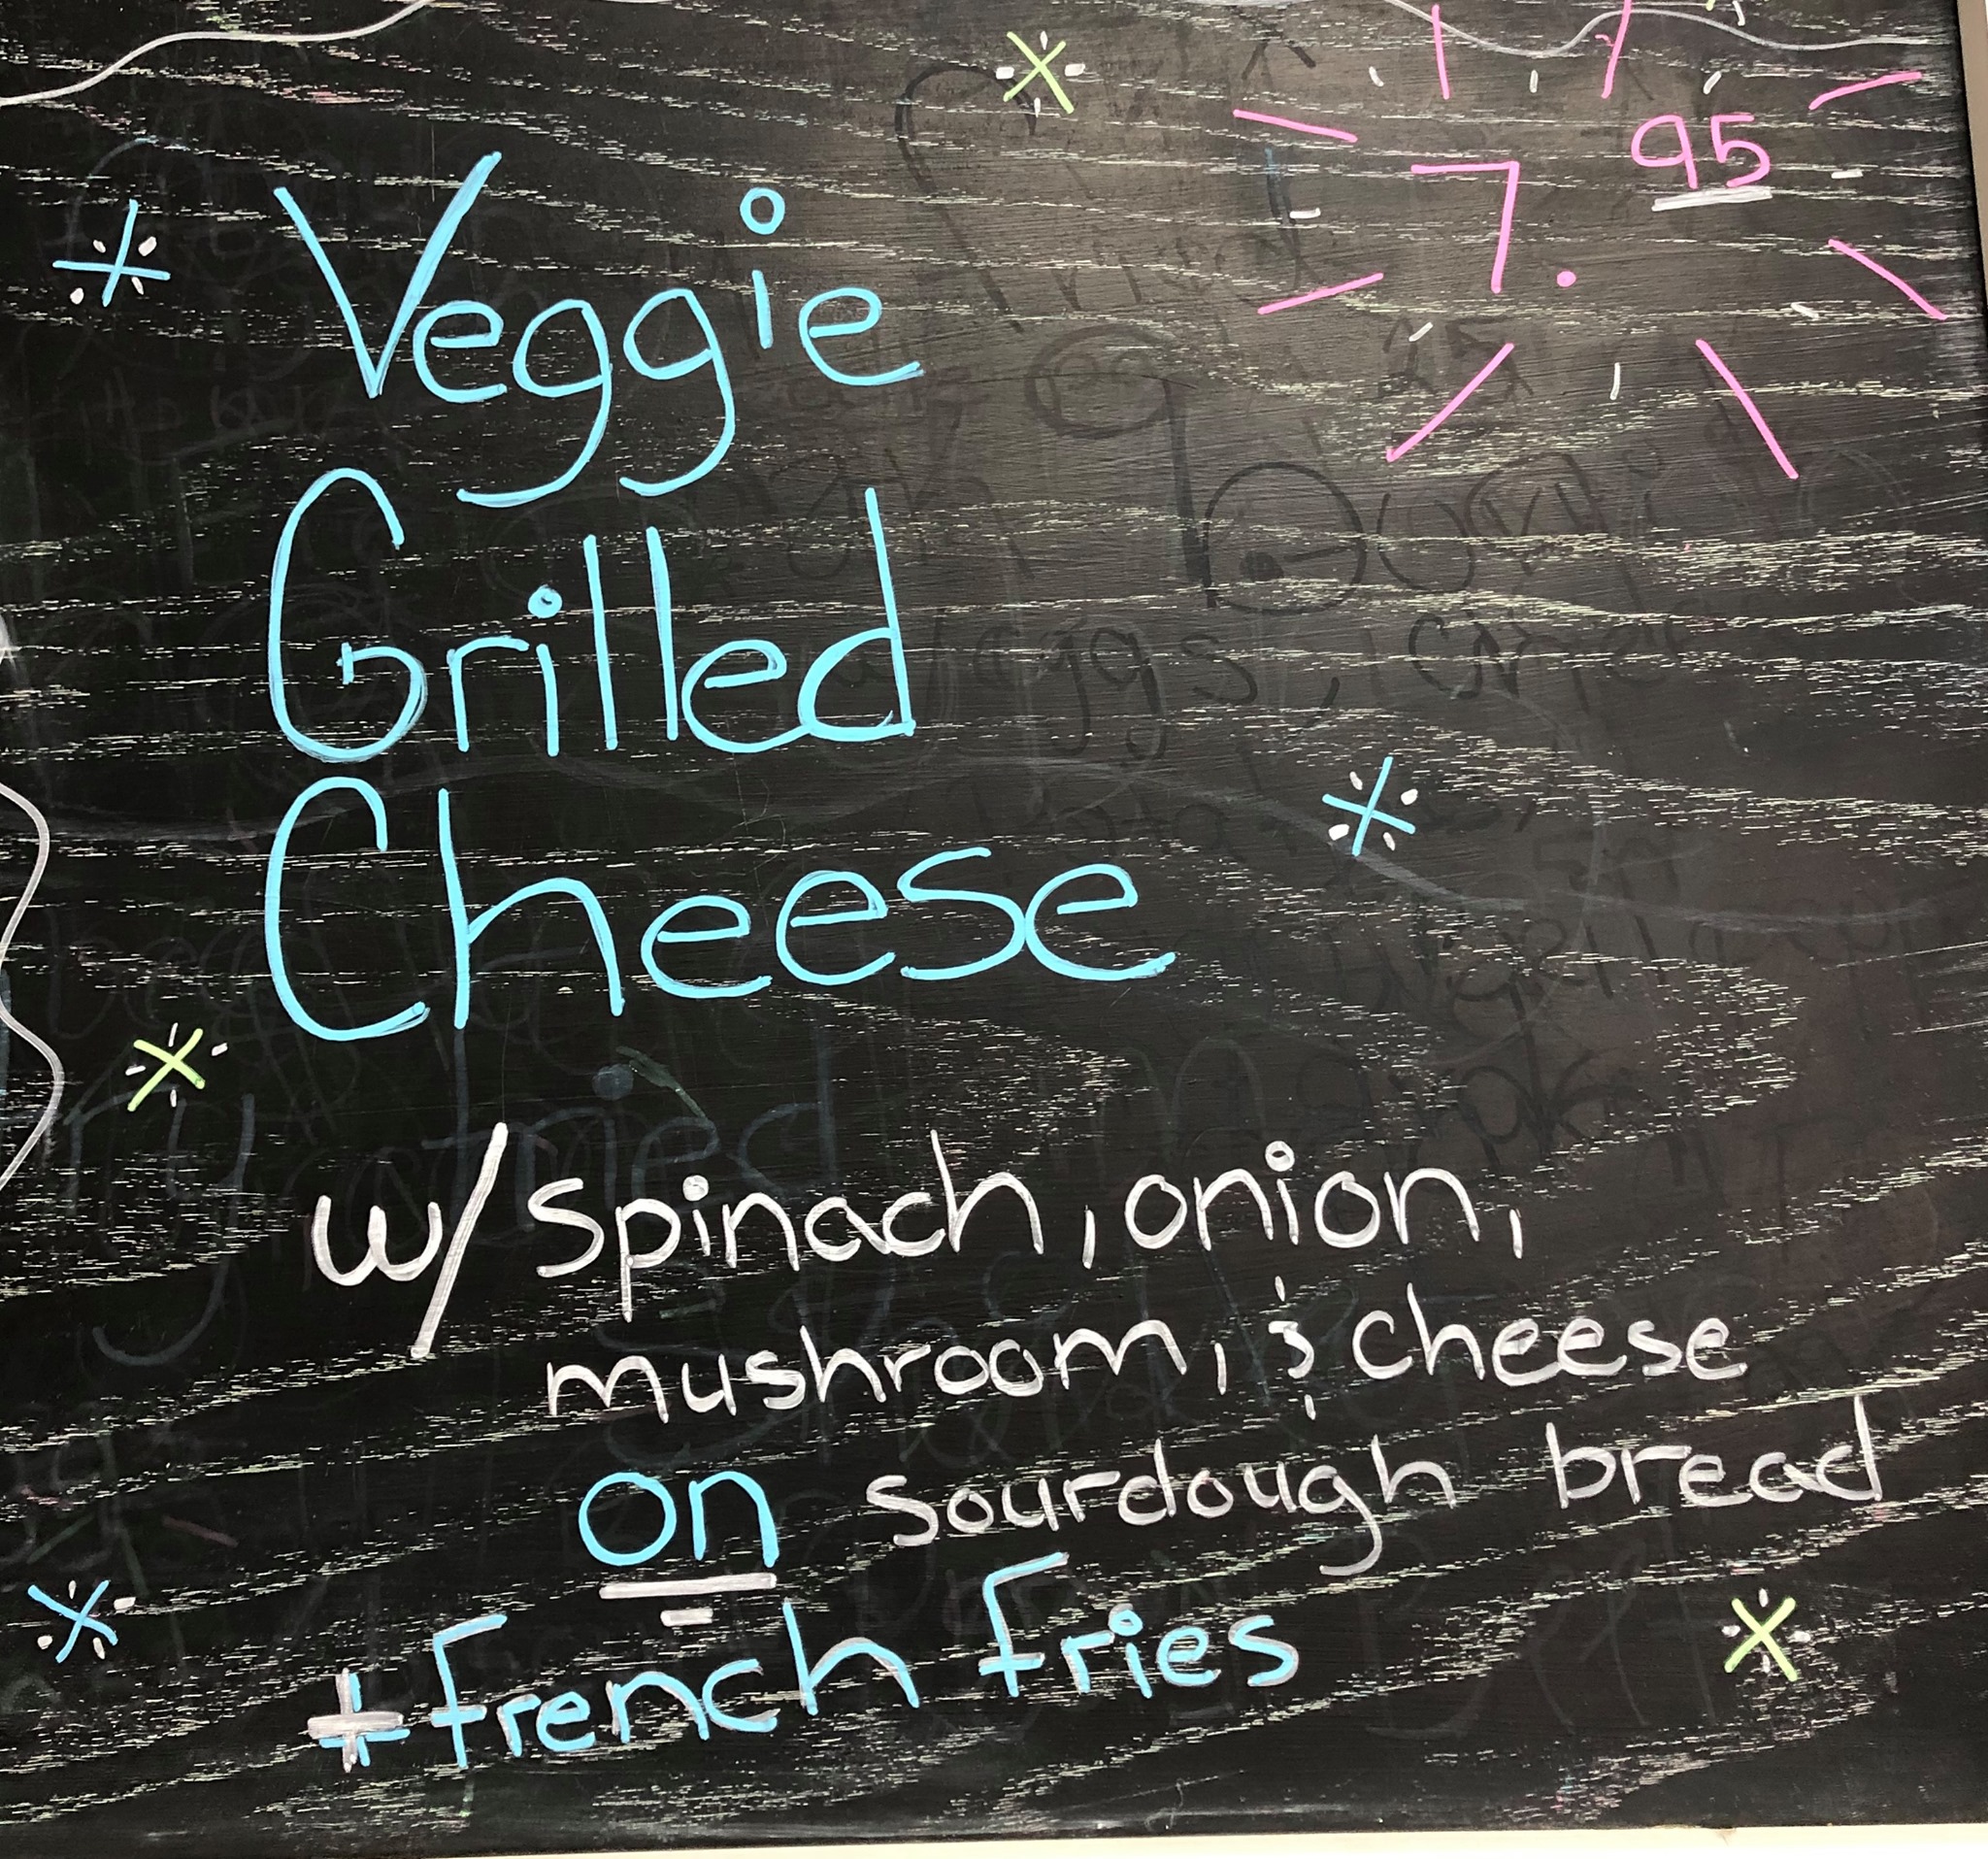 7.95
Veggie
Grilled
Cheese
w/ spinach, onion,
mushroom, & cheese
on sourdough bread
+ french fries